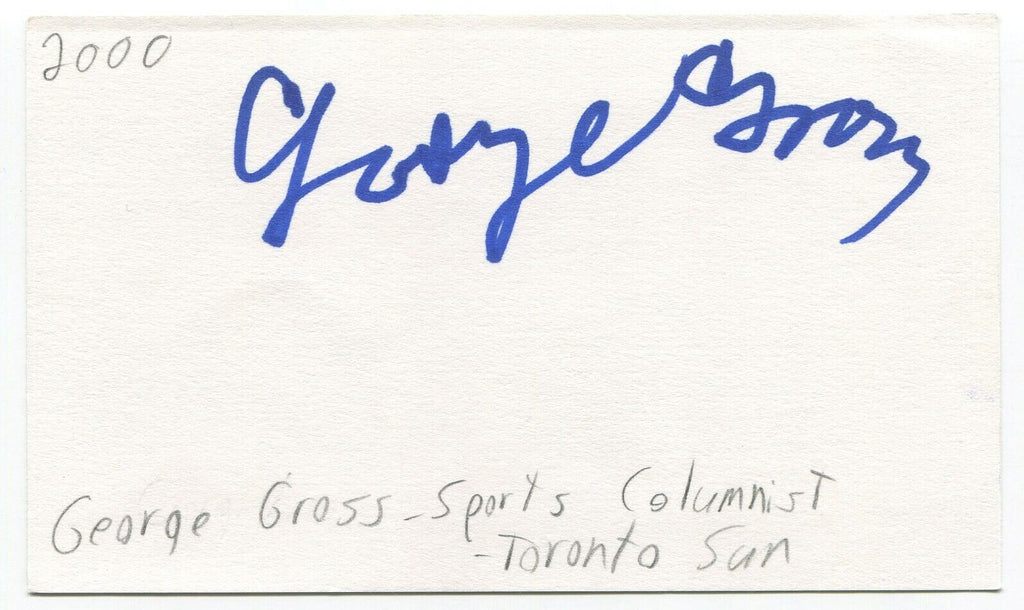 2000
George Gross
George Gross - Sports Columnist
- Toronto Sun